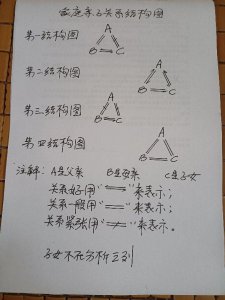 家庭亲子关系结构图
第一结构图
A
B C
第二结构图
A
B C
第三结构图
A
B C
第四结构图
A
B C
注解: A是父亲 B是母亲 C是子女
关系好用"═"来表示;
关系一般用"="来表示;
关系紧张用"≠"来表示。
子女不在分析